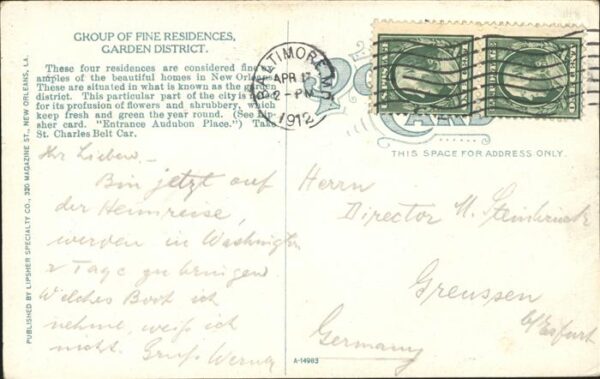 GROUP OF FINE RESIDENCES,
GARDEN DISTRICT.
These four residences are considered fine
amples of the beautiful homes in New Orle
These are situated in what is known as the garden
district. This particular part of the city is
for its profusion of flowers and shrubbery, which
keep fresh and green the year round. (See Lip-
sher card. "Entrance Audubon Place.") Take
St. Charles Belt Car.
BALTIMORE, MD.
APR 17
2-PM
1912
CARD
THIS SPACE FOR ADDRESS ONLY.
Ihr Lieben, –
Bin jetzt auf
der Heimreise,
werden in Washington
2 Tage zubringen
Welches Boot ich
nehme, weiß ich
nicht. Gruß Werner
Herrn
Director H. Steinbrück
Greussen
b/Erfurt
Germany
A-14983
PUBLISHED BY LIPSHER SPECIALTY CO., 320 MAGAZINE ST., NEW ORLEANS, LA.